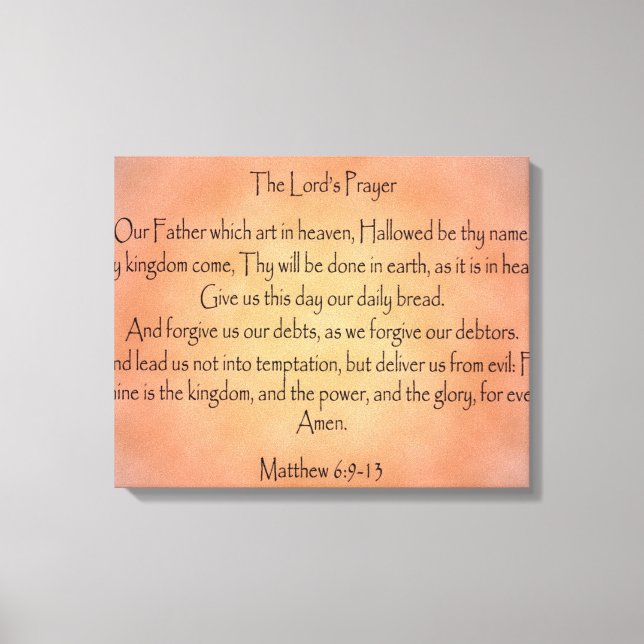 The Lord's Prayer
Our Father which art in heaven, Hallowed be thy name
y kingdom come, Thy will be done in earth, as it is in hea
Give us this day our daily bread.
And forgive us our debts, as we forgive our debtors.
nd lead us not into temptation, but deliver us from evil: F
ine is the kingdom, and the power, and the glory, for eve
Amen.
Matthew 6:9-13